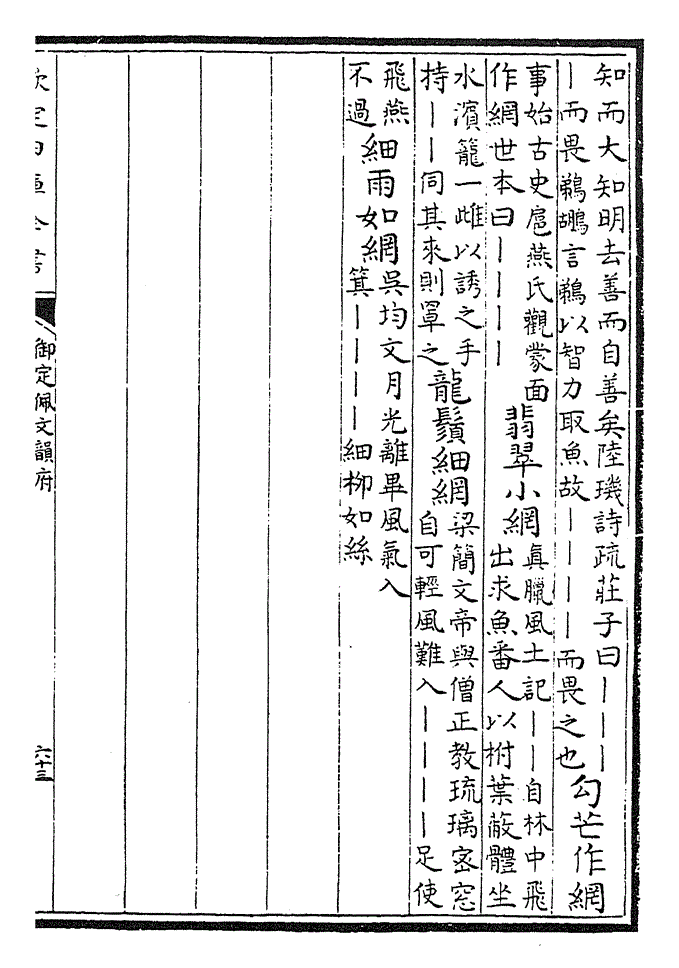 知而大知明去善而自善矣陸璣詩疏莊子曰｜｜｜
｜而畏鵜鶘言鵜以智力取魚故｜｜｜｜而畏之也
勾芒作網
事始古史庖燕氏觀蒙面
作網世本曰｜｜｜｜
翡翠小網
真臘風土記｜｜自林中飛
出求魚番人以柎葉蔽體坐
水濱籠一雌以誘之手
持｜｜伺其來則罩之
龍鬚細網
梁簡文帝與僧正教琉璃密窓
自可輕風難入｜｜｜｜足使
飛燕
不過
細雨如網
吳均文月光離畢風氣入
箕｜｜｜｜細柳如絲
欽定四庫全書
御定佩文韻府
六十三